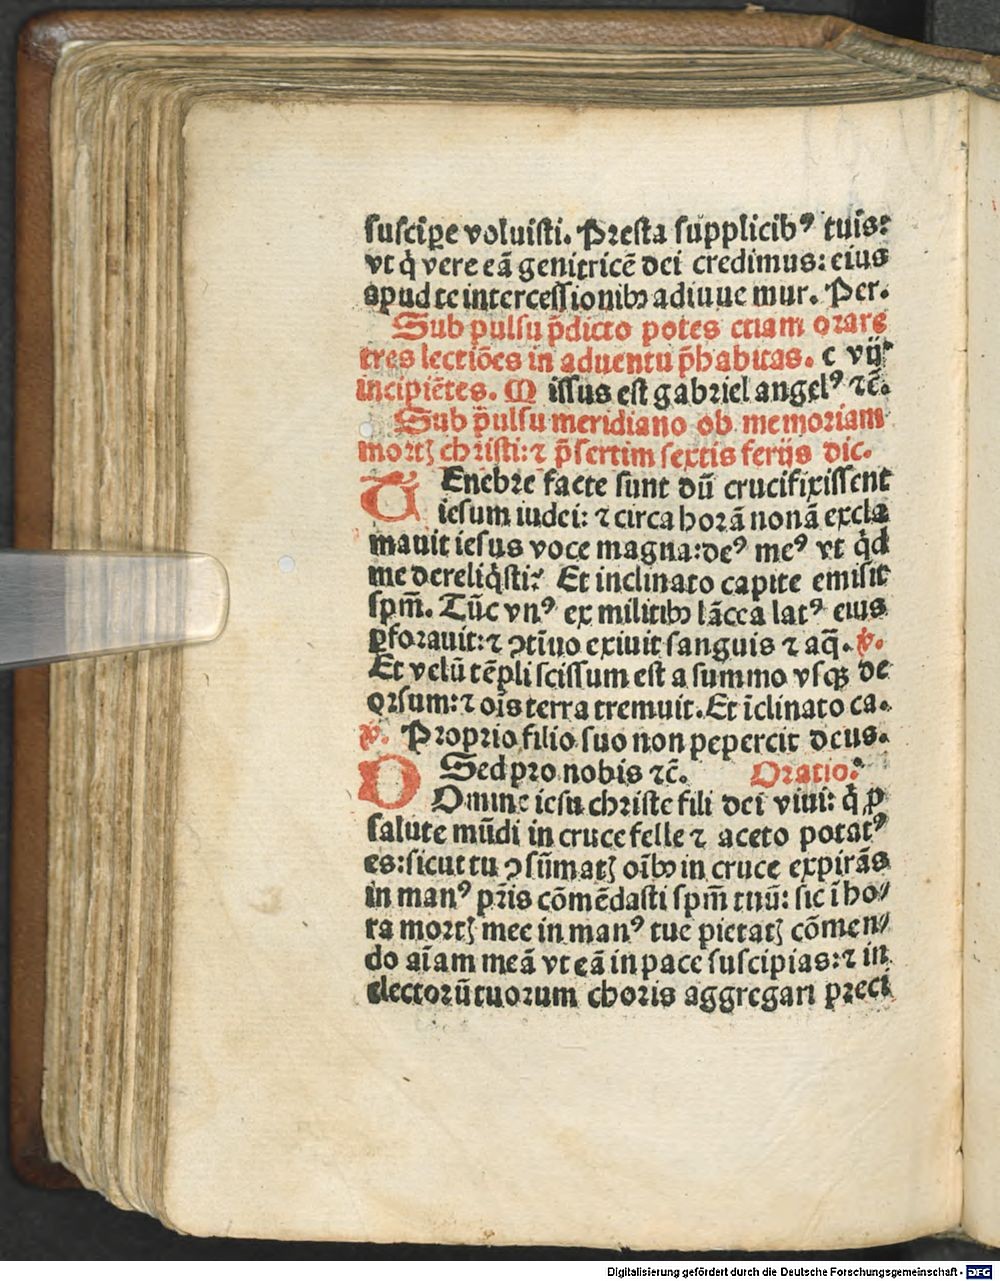 suscipe voluisti. Presta supplicibꝰ tuis:
vt q̇ vere eā genitricē dei credimus: eius
apud te intercessionibꝫ adiuue mur. Per.
Sub pulsu p̄dicto potes etiam orare
tres lectiões in aduentu p̄habitas. c vij
incipiētes. M issus est gabriel angelꝰ ⁊c̄.
Sub p̄ulsu meridiano ob memoriam
mortꝭ christi: ⁊ p̄sertim sextis ferijs dic.
TEnebre facte sunt dū crucifixissent
iesum iudei: ⁊ circa horā nonā excla
mauit iesus voce magna: deꝰ meꝰ vt q̇d
me dereliq̇sti? Et inclinato capite emisit
spm̄. Tūc vnꝰ ex militibꝫ lācea latꝰ eius
ꝑforauit: ⁊ ꝯtinuo exiuit sanguis ⁊ aq̄. ℣.
Et velū tēpli scissum est a summo vsqꝫ de
orsum: ⁊ oīs terra tremuit. Et īclinato ca.
℣. Proprio filio suo non pepercit deus.
Sed pro nobis ⁊c̄. Oratio.
DOmine iesu christe fili dei viui: q̇ ꝓ
salute mūdi in cruce felle ⁊ aceto potatꝰ
es: sicut tu ꝯsūmatꝭ oībꝫ in cruce expirās
in manꝰ pr̄is cōmēdasti spm̄ tuū: sic ī ho/
ra mortꝭ mee in manꝰ tue pietatꝭ cōmen/
do aīam meā vt eā in pace suscipias: ⁊ in
electorū tuorum choris aggregari preci
Digitalisierung gefördert durch die Deutsche Forschungsgemeinschaft - DFG